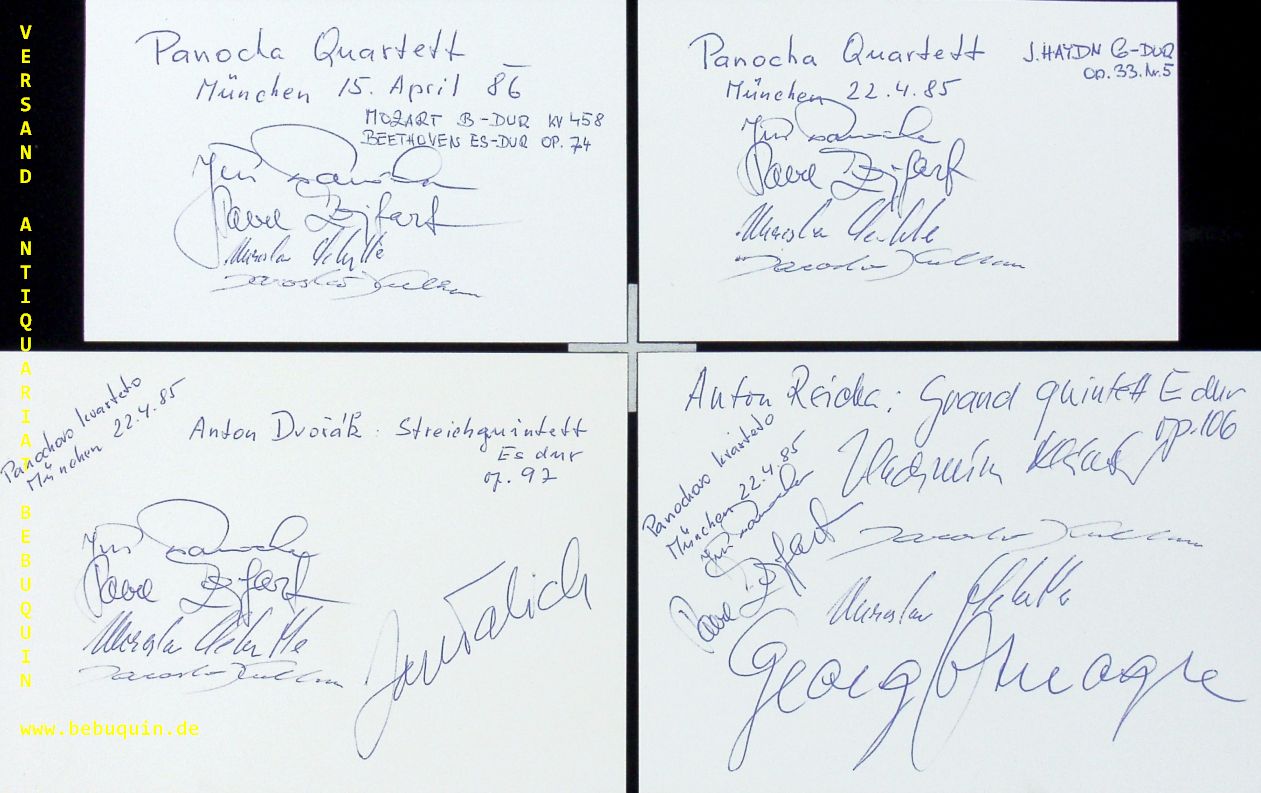 VERSAND ANTIQUARIAT BEBUQUIN
www.bebuquin.de
Panocha Quartett
München 15. April 86
MOZART B-DUR KV 458
BEETHOVEN ES-DUR OP. 74
Jiří Panocha
Pavel Zejfart
Miroslav Sehnoutka
Jaroslav Kulhan
Panocha Quartett
J. HAYDN G-DUR
OP. 33. Nr. 5
München 22.4.85
Jiří Panocha
Pavel Zejfart
Miroslav Sehnoutka
Jaroslav Kulhan
Panochovo kvarteto
München 22.4.85
Anton Dvořák: Streichquintett
Es dur
op. 97
Jiří Panocha
Pavel Zejfart
Miroslav Sehnoutka
Jaroslav Kulhan
Jan Talich
Anton Reicha: Grand quintett E dur
op. 106
Panochovo kvarteto
München 22.4.85
Jiří Panocha
Pavel Zejfart
Vladimíra
Jaroslav Kulhan
Miroslav Sehnoutka
Georg